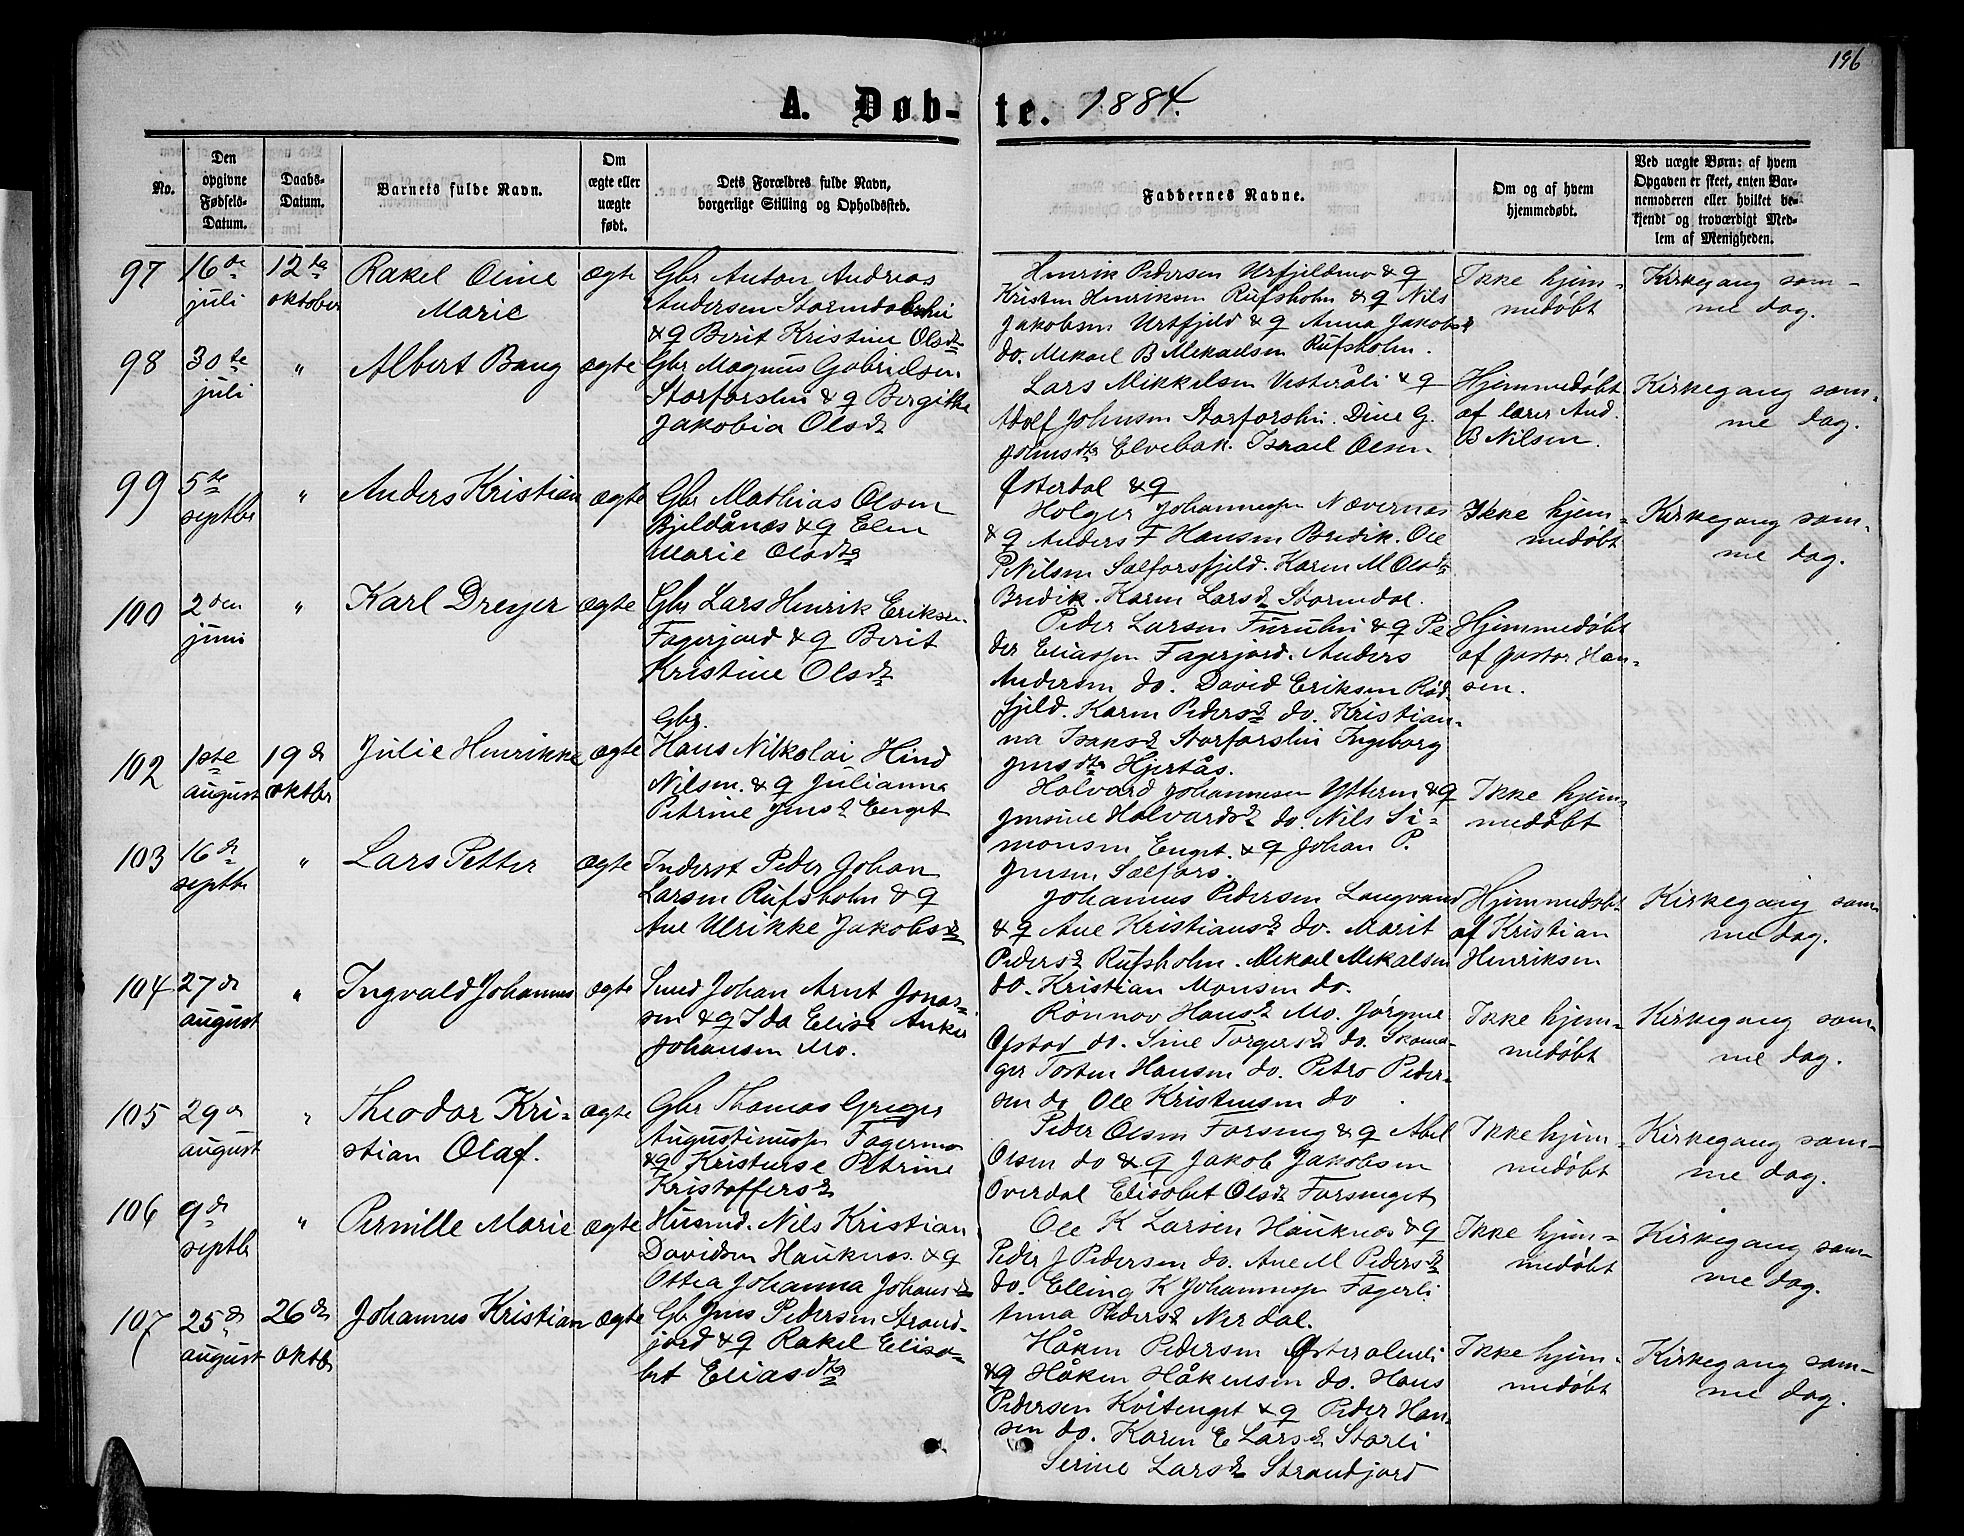 196
A. Døb-te. 1884.
No.
Den opgivne Fødsels-Datum.
Daabs-Datum.
Barnets fulde Navn.
Om ægte eller uægte født.
Dets Forældres fulde Navn, borgerlige Stilling og Opholdssted.
Faddernes Navne.
Om og af hvem hjemmedøbt.
Ved uægte Børn: af hvem Opgaven er skeet, enten Barnemoderen eller hvilket bekjendt og troværdigt Medlem af Menigheden.
97
16de juli
12te oktober
Rakel Oline
Marie
ægte
Gbr Anton Andreas
Andersen Stormdalshei
& q Berit Kristine Olsdt
Henrik Pedersen Urfjeldmo & q
Kristen Henriksen Rufsholm & q Nils
Jakobsen Urtfjeld & q Anna Jakobsd
do. Mekael B Mekaelsen Rufsholm.
Ikke hjem-
medøbt
Kirkegang sam-
me dag.
98
30te juli
"
Albert Bang
ægte
Gbr Magnus Gabrielsen
Storforshei & q Bergitha
Jakobia Olsdt
Lars Mikkelsen Vesteråli & q
Adolf Johnsen Storforshei. Dine G.
Johnsdtr Elvebak. Israel Olsen
Østerdal & q
Hjemmedøbt
af lærer And.
B Nilsen.
Kirkegang sam-
me dag.
99
5te septbr
"
Anders Kristian
ægte
Gbr Mathias Olsen
Bjeldånæs & q Elen
Marie Olsdtr
Holger Johannesen Nævernæs
& q Anders F Hansen Bredik. Ole
P Nilsen Sælforsfjeld. Karen M Olsdt
Bredik. Karen Larsd Stormdal.
Ikke hjem-
medøbt
Kirkegang sam-
me dag.
100
2den juni
"
Karl Dreyer
ægte
Gbr Lars Henrik Eriksen
Fagerjord & q Berit
Kristine Olsdt
Peder Larsen Furuhei & q Pe
der Eliassen Fagerjord. Anders
Andersen do. David Eriksen Rød
fjeld. Karen Pedersd do. Kristian-
na Isaksd Storforshei Ingeborg
Jensdtr Hjertås.
Hjemmedøbt
af pastor Han-
sen.
102
1ste august
19de oktbr
Julie Henrikke
ægte
Gbr.
Hans Nilkolai Hind
Nilsen. & q Julianna
Petrine Jensd Enget
Halvard Johannesen Ytteren & q
Jensine Halvardsd do. Nils Si-
monsen Enget. & q Johan P.
Jensen Sælfors.
Ikke hjem-
medøbt
103
16de septbr
"
Lars Petter
ægte
Inderst Peder Johan
Larsen Rufsholm & q
Ane Ulrikke Jakobsd
Johannes Pedersen Langvand
& q Ane Kristiansd do. Marit
Pedersd Rufsholm. Mekael Mekalsen
do. Kristian Monsen do.
Hjemmedøbt
af Kristian
Henriksen
Kirkegang sam-
me dag.
104
27de august
"
Ingvald Johannes
ægte
Smed Johan Arnt Jonas-
sen & q Ida Elise Anker
Johansen Mo.
Rønnov Hansd Mo. Jørgine
Ofstad do. Sine Torgersd do. Skoma-
ger Torsten Hansen do. Petro Peder-
sen do Ole Kristensen do
Ikke hjem-
medøbt
Kirkegang sam-
me dag.
105
29de august
"
Theodor Kri-
stian Olaf.
ægte
Gbr Thomas Greger
Augustinussen Fagermo
& q Kristense Petrine
Kristoffersd
Peder Olsen Forsmo & q Abel
Olsen do & q Jakob Jakobsen
Overdal Elisabet Olsdt Forsenget
Ikke hjem-
medøbt
Kirkegang sam-
me dag.
106
9de septbr
"
Pernille Marie
ægte
Husmd. Nils Kristian
Davidsen Hauknæs. & q
Ottea Johanna Johansd
Ole K Larsen Hauknæs & q
Peder J Pedersen do. Ane M Pedersd
do. Elling K Johannessen Fagerli
Anna Pedersd Nerdal.
Ikke hjem-
medøbt
Kirkegang sam-
me dag.
107
25de august
26de oktbr
Johannes Kristian
ægte
Gbr Jens Pedersen Strand-
jord & q Rakel Elisa-
bet Eliasdtr
Håken Pedersen Østeralenli
& q Håken Håkensen do. Hans
Pedersen Kvitenget & q Peder Han-
sen do. Karen E Larsd Storli
Serine Larsd Strandjord
Ikke hjem-
medøbt
Kirkegang sam-
me dag.